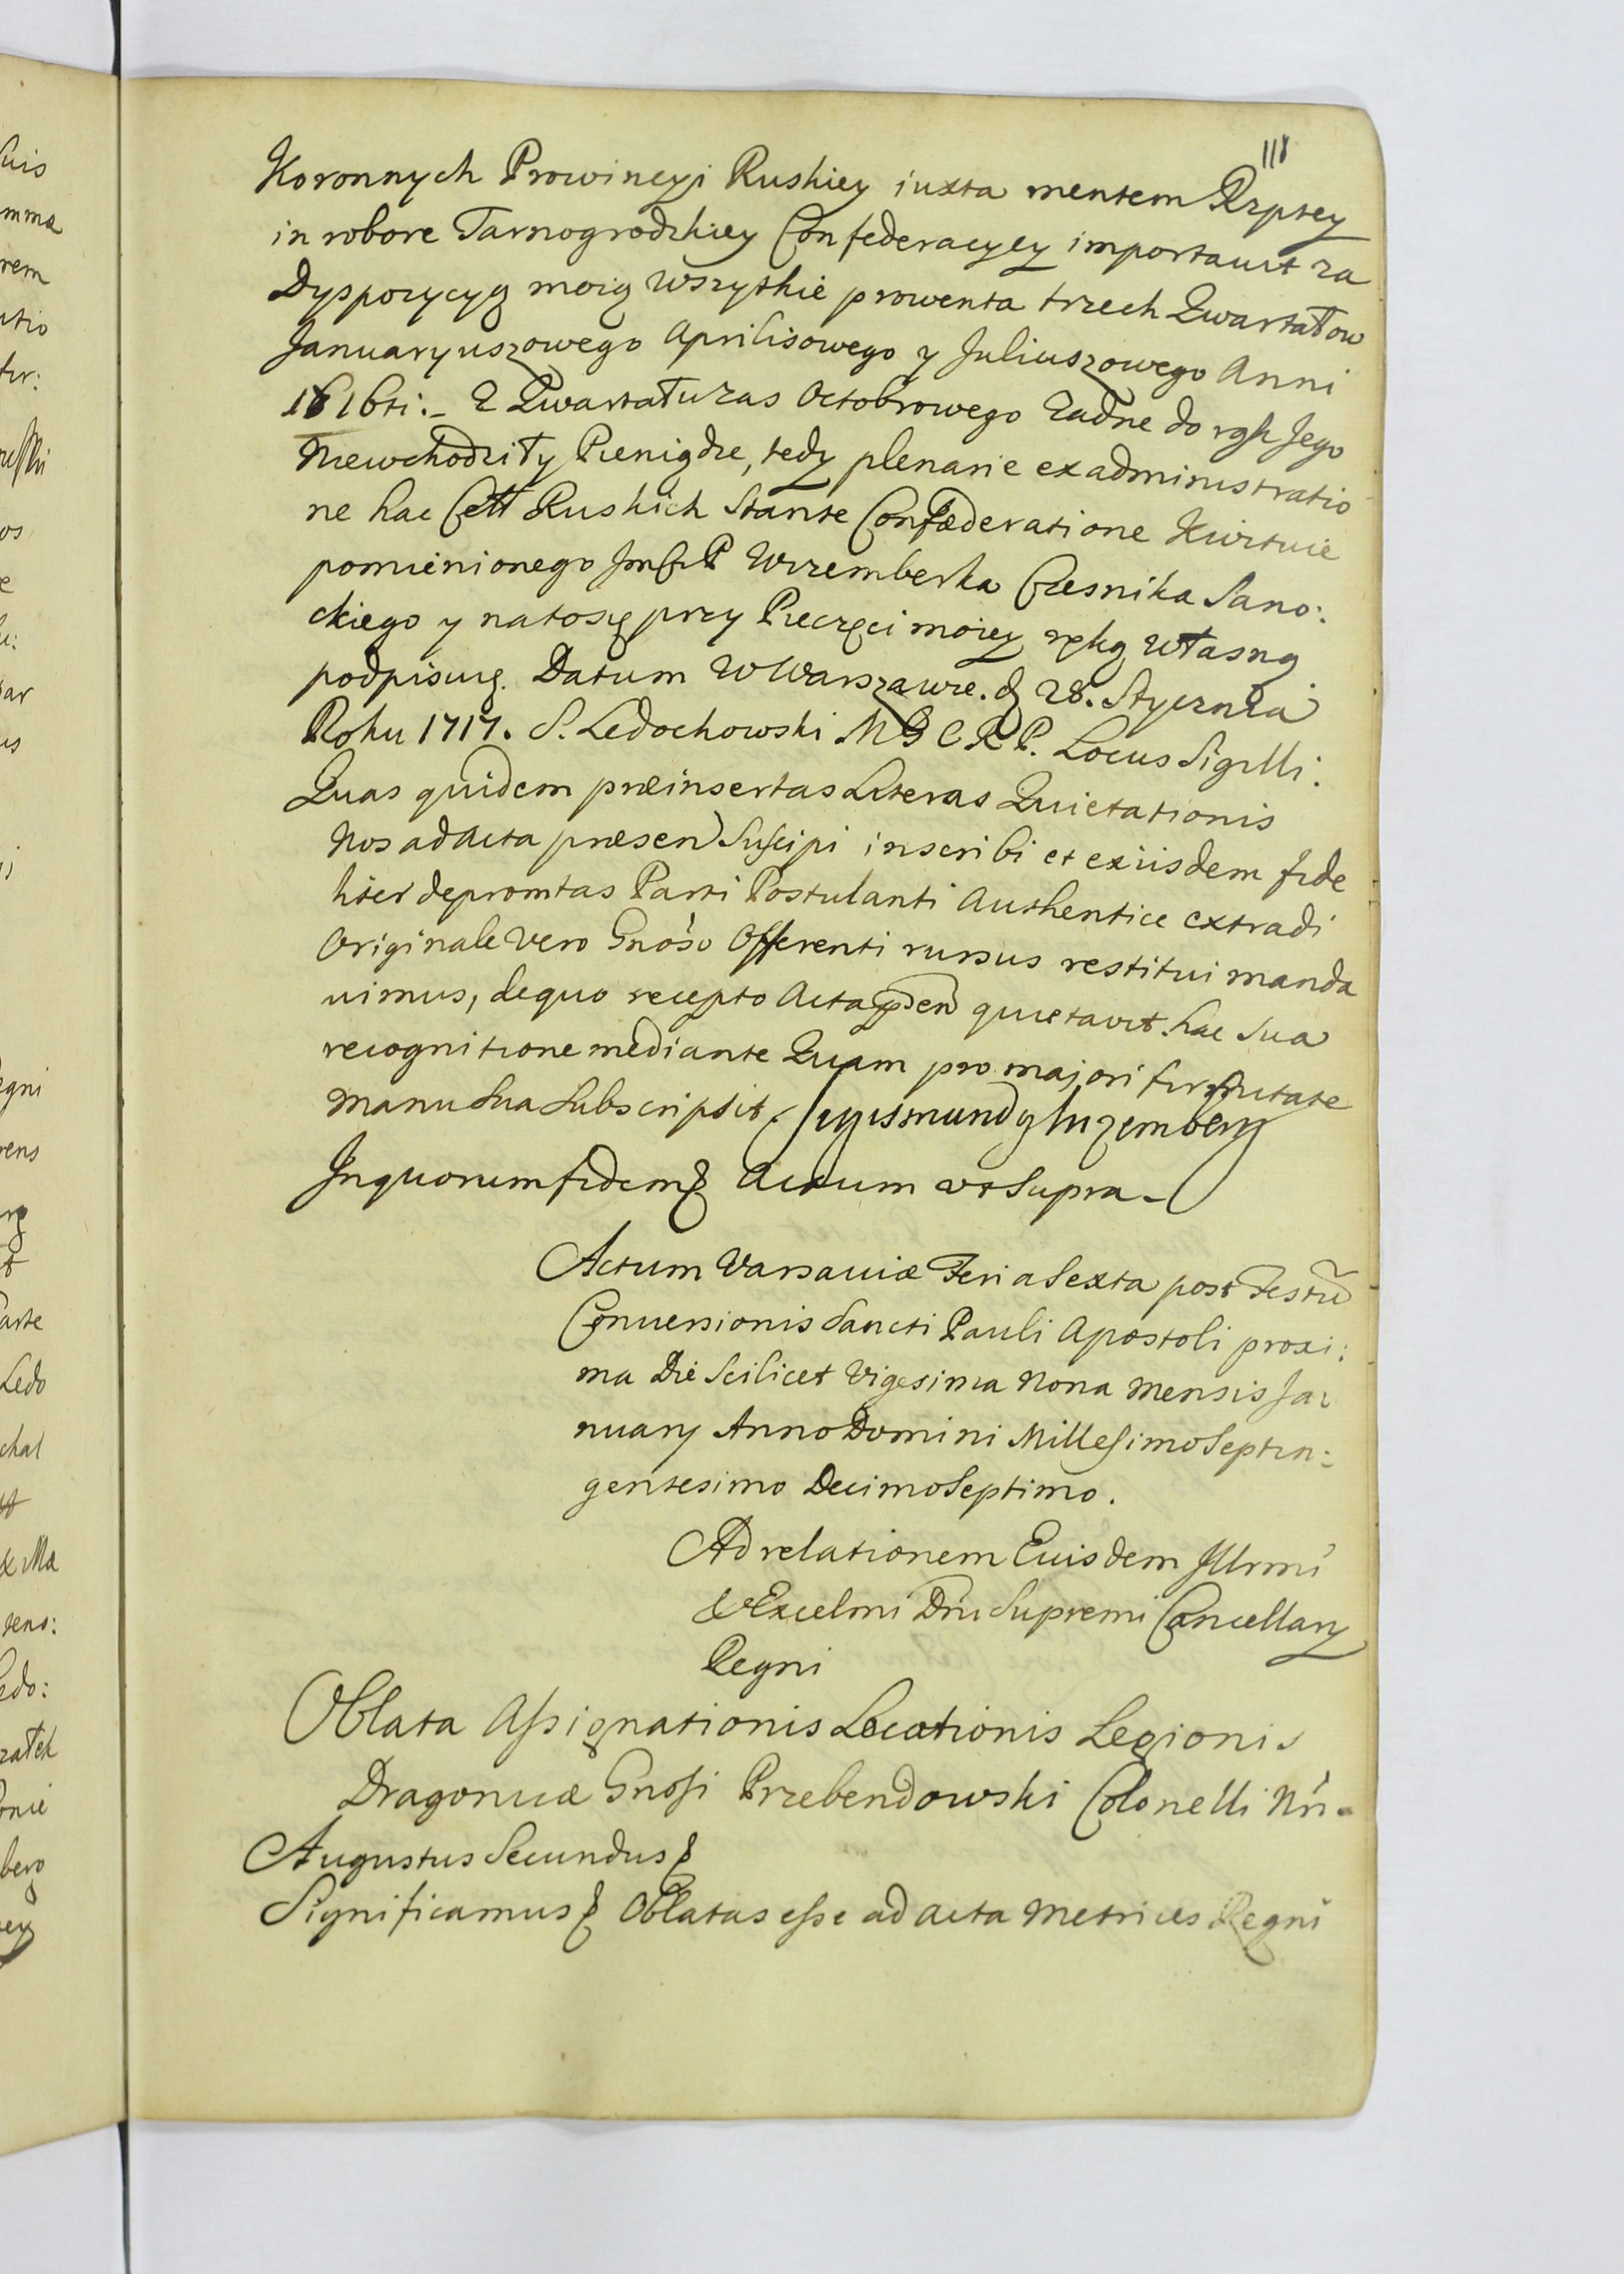 118
Koronnych Prowincyi Ruskiey iuxta mentem Rzptey
in robore Tarnogrodzkiey Confederacyey importavit za
Dyspozycyą moią wszytkie prowenta trzech Quartałow
Januaryuszowego Aprilisowego y Juliuszowego Anni
1616ti:- Z Quartału zas Octobrowego Zadne do rąk Jego
Niewchodziły Pieniądze, tedy plenarie ex administratio
ne hac Cell Ruskich Stante Confæderatione Kwituie
pomienionego Wrzemberka Czesnika Sano:
ckiego y natosię przy Pieczęci moiey ręką własną
podpisuię. Datum W Warszawie. d 28. Stycznia
Roku 1717. S. Ledochowski M G C R P. Locus Sigilli:
Quas quidem præinsertas Literas Quietationis
Nos ad Acta præsen Suscipi inscribi et exiisdem fide
liter depromtas Parti Postulanti Authentice extradi
Originale Vero Gnoso Offerenti rursus restitui manda
uimus, dequo recepto Acta pden quietavit hac Sua
recognitione mediante Quam pro majori firmitate
manu Sua Subscripsit
Inquorum fidem & Actum vt Supra-
Actum Varsaviæ Feria Sexta post Festũ
Conversionis Sancti Pauli Apostoli proxi:
ma Die Scilicet Vigesima Nona Mensis Ja:
nuarÿ Anno Domini Millesimo Septin:
gentesimo Decimo Septimo.
Ad relationem Euisdem Illrmi
& Excelmi Dni Supremi Cancellarÿ
Regni
Oblata Assignationis Locationis Legionis
Dragonicæ Gnosi Przebendowski Colonelli Nri-
Augustus Secundus &
Significamus & Oblatas esse ad Acta Metrices Regni